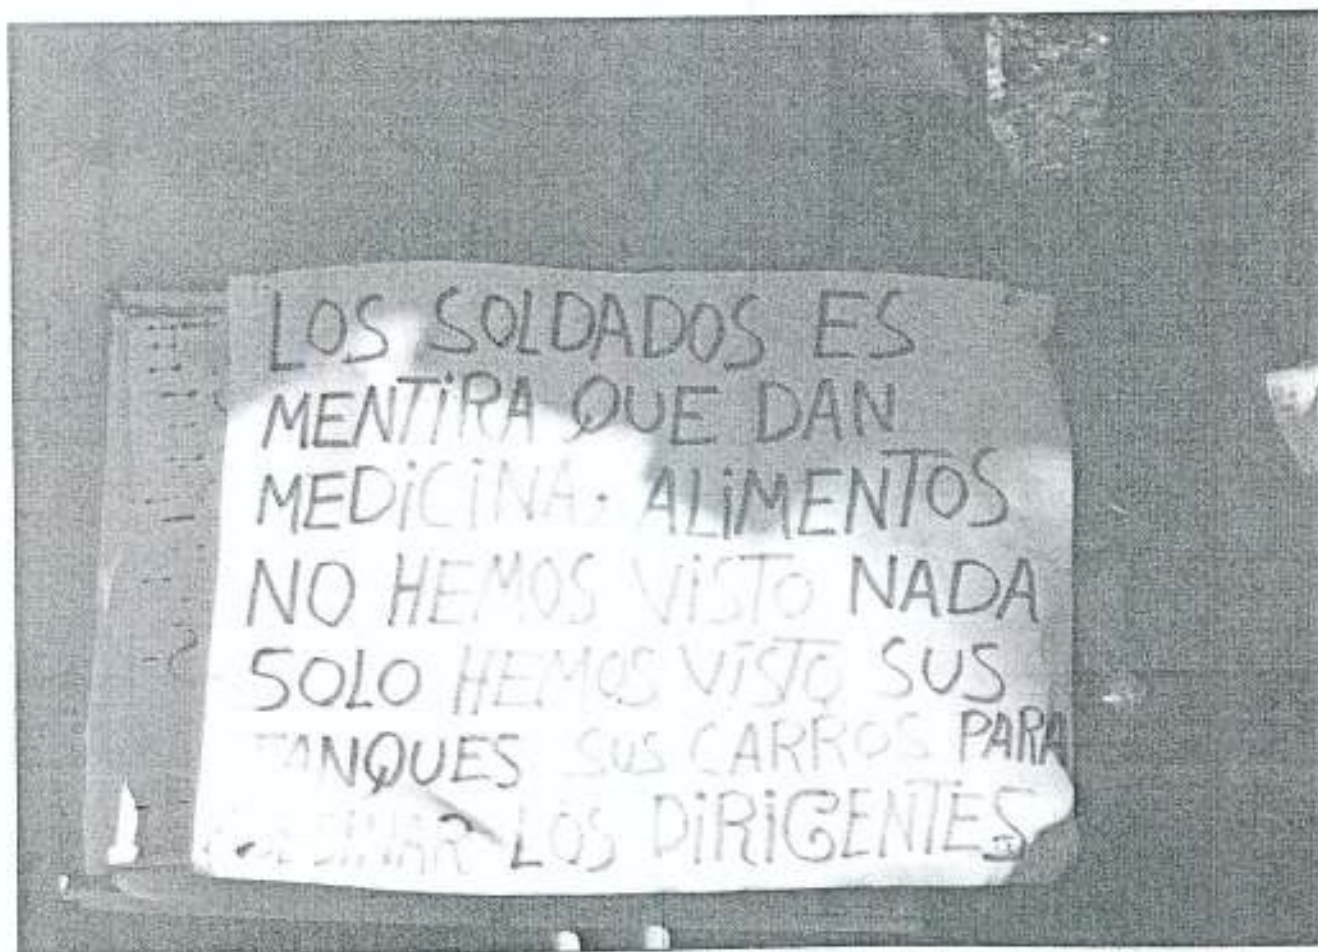 LOS SOLDADOS ES
MENTiRA QUE DAN
MEDiCiNA. ALiMENTOS
NO HEMOS ViSTO NADA
SOLO HEMOS ViSTO SUS
TANQUES SUS CARROS PARA
LOS DiRiGENTES